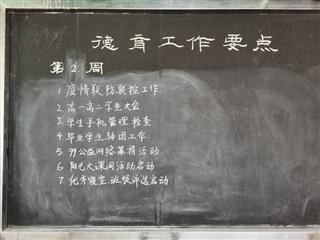 德育工作要点
第2周
1. 疫情联防联控工作
2. 高一高二学生大会
3. 学生手机管理检查
4. 毕业学生转团工作
5. 99公益网络募捐活动
6. 阳光大课间活动启动
7. 优秀寝室、班级评选启动